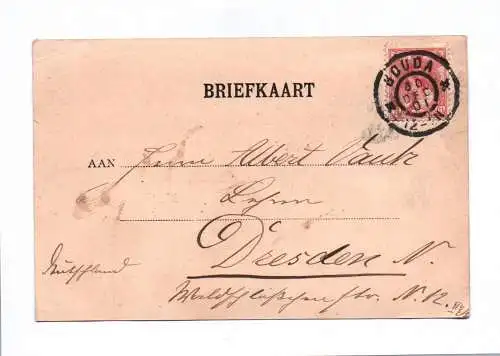 GOUDA
30
DEC
01
12-
BRIEFKAART
AAN Herrn Albert
Lehrer
Dresden N.
Deutschland
Waldschlößchen str. N. 12.